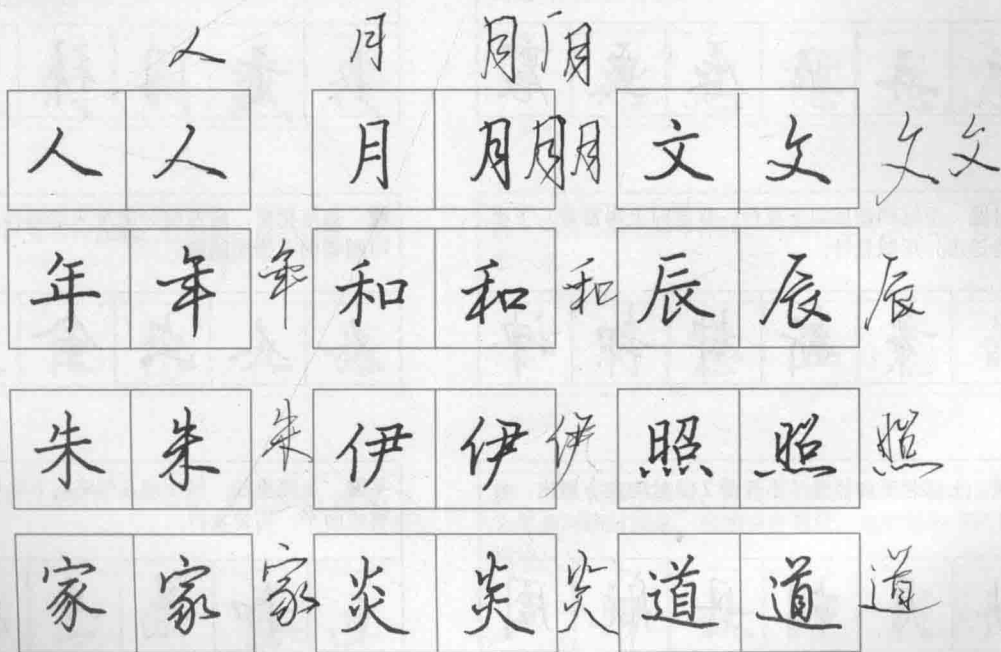 人 月 月 月
人 人 月 月 月 月 文 文 文 文
年 年 年 和 和 和 辰 辰 辰
朱 朱 朱 伊 伊 伊 照 照 照
家 家 家 炎 炎 炎 道 道 道